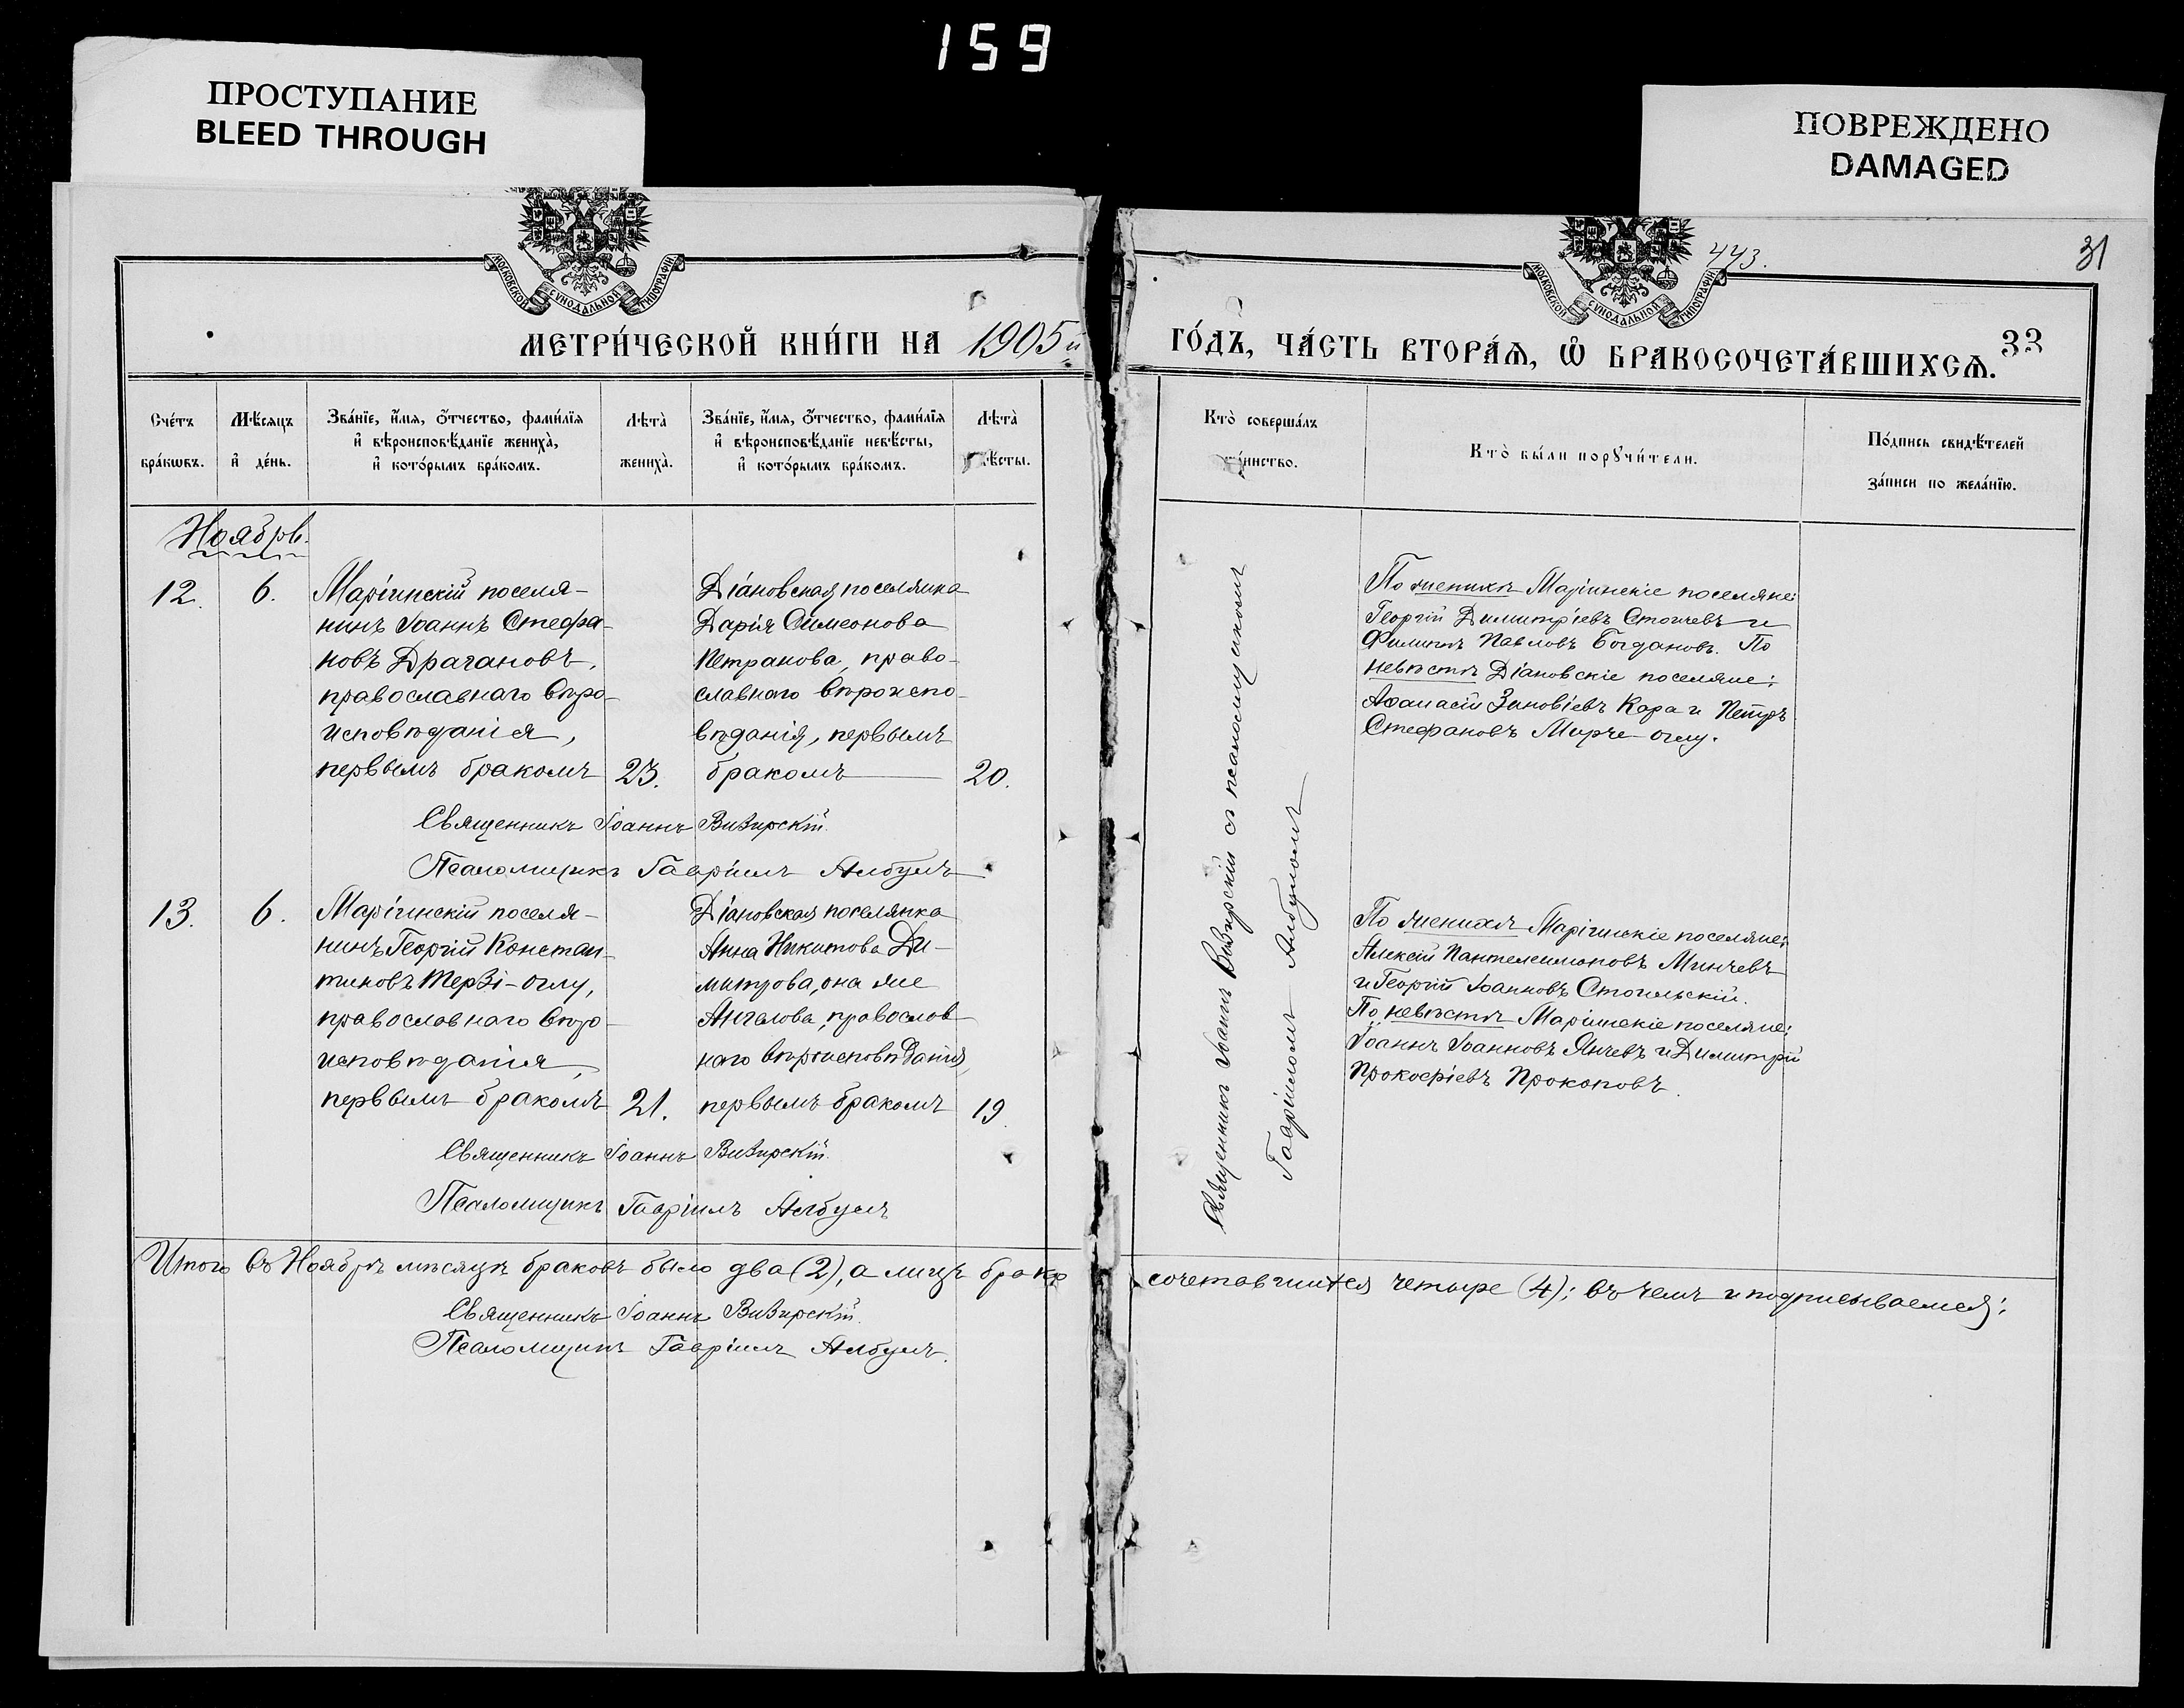 159
ПРОСТУПАНИЕ
BLEED THROUGH
ПОВРЕЖДЕНО
DAMAGED
МОСКОВСКОЙ СѴНОДАЛЬНОЙ ТИПОГРАФІИ
МОСКОВСКОЙ СѴНОДАЛЬНОЙ ТИПОГРАФІИ
443.
31
33
МЕТРИ́ЧЕСКОЙ КНИ́ГИ НА 1905й
ГО́ДЪ, ЧА́СТЬ ВТОРА́Ѧ, Ѽ БРАКОСОЧЕТА́ВШИХСѦ.
Сче́тъ бра́кѡвъ.
Мѣ́сяцъ и҆ де́нь.
Зва́нїе, и҆́мя, ѻ҆́тчество, фами́лїя
и҆ вѣроисповѣ́данїе жениха̀,
и҆ кото́рымъ бра́комъ.
Лѣта̀ жениха̀.
Зва́нїе, и҆́мя, ѻ҆́тчество, фами́лїя
и҆ вѣроисповѣ́данїе невѣ́сты,
и҆ кото́рымъ бра́комъ.
Лѣта̀
Кто̀ соверша́лъ
Кто̀ бы́ли порꙋчи́тели.
По́дпись свидѣ́телей
за́писи по жела́нїю.
Ноябрь.
12.
6.
Маріинскій поселя-
нинъ Іоаннъ Стефа-
новъ Драгановъ,
православнаго вѣро-
исповѣданія,
первымъ бракомъ
23.
Діановская поселянка
Дарія Симеонова
Петракова, право-
славнаго вѣроиспо-
вѣданія, первымъ
бракомъ
20.
Священникъ Іоаннъ Визирскій.
Псаломщикъ Гавріилъ Албулъ
По женихѣ Маріинскіе поселяне:
Георгій Димитріевъ Стоичевъ и
Филиппъ Павловъ Богдановъ. По
невѣстѣ Діановскіе поселяне:
Аѳанасій Зиновіевъ Кара и Петръ
Стефановъ Мирче-оглу.
13.
6.
Маріинскій поселя-
нинъ Георгій Констан-
тиновъ Терзі-оглу,
православнаго вѣро-
исповѣданія,
первымъ бракомъ
21.
Діановская поселянка
Анна Никитова Ди-
митрова, она же
Ангелова, православ-
наго вѣроисповѣданія,
первымъ бракомъ
19.
Священникъ Іоаннъ Визирскій.
Псаломщикъ Гавріилъ Албулъ
По женихѣ Маріинскіе поселяне:
Алексій Пантелеимоновъ Минчевъ
и Георгій Іоанновъ Стоильскій.
По невѣстѣ Маріинскіе поселяне:
Іоаннъ Іоанновъ Янчевъ и Димитрій
Прокофіевъ Прокоповъ.
Священникъ Іоаннъ Визирскій съ псаломщикомъ
Гавріиломъ Албуломъ
Итого въ Ноябрѣ мѣсяцѣ браковъ было два (2), а лицъ брако
сочетавшихся четыре (4); въ чемъ и подписываемся:
Священникъ Іоаннъ Визирскій.
Псаломщикъ Гавріилъ Албулъ.